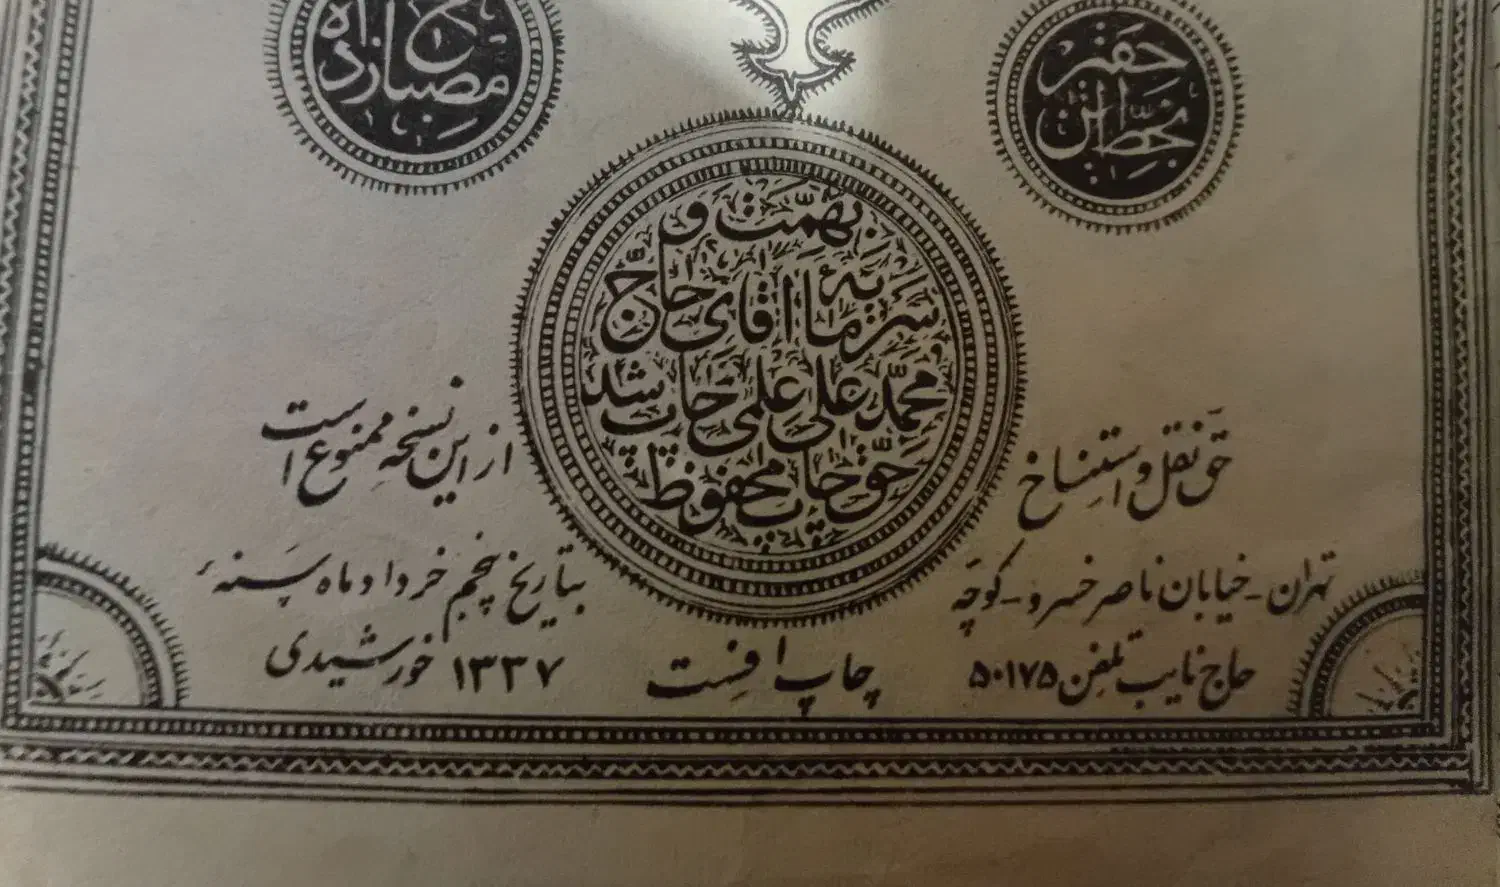 بخط این
حقیر
مصباح زاده
بهمّت و
سرمایهٔ آقای حاجّ
محمّد علی علمی چاپ شد
حقّ چاپ محفوظ
حق نقل و استنساخ
از این نسخه ممنوع است
تهران - خیابان ناصر خسرو - کوچه
حاج نایب تلفن ۵۰۱۷۵
چاپ افست
بتاریخ پنجم خرداد ماه سنهٔ
۱۳۳۷ خورشیدی